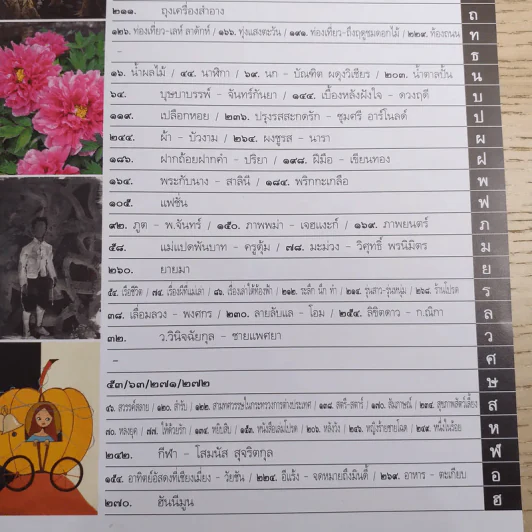 ๒๑๑. ถุงเครื่องสำอาง ถ
๑๒๖. ท่องเที่ยว-เลห์ ลาดักห์ / ๑๖๖. ทุ่งแสงตะวัน / ๑๙๑. ท่องเที่ยว-ถึงฤดูชมดอกไม้ / ๒๒๙. ท้องถนน ท
– ธ
๑๖. น้ำผลไม้ / ๔๔. นาฬิกา / ๖๙. นก - บัณฑิต ผดุงวิเชียร / ๒๐๓. น้ำตาลปั้น น
๖๔. บุษบาบรรพ์ - จันทร์กันยา / ๑๔๔. เบื้องหลังฝังใจ - ดวงฤดี บ
๑๑๙. เปลือกหอย / ๒๓๖. ปรุงรสสะกดรัก - ชุมศรี อาร์โนลด์ ป
๒๔๔. ผ้า - บัวงาม / ๒๖๔. ผงชูรส - นารา ผ
๑๘๖. ฝากถ้อยฝากคำ - ปริยา / ๑๙๘. ฝีมือ - เขียนทอง ฝ
๑๖๔. พระกับนาง - สาลินี / ๑๘๔. พริกกะเกลือ พ
๑๐๕. แฟชั่น ฟ
๙๒. ภูต - พ.จันทร์ / ๑๕๐. ภาพพม่า - เจฮแงะก์ / ๑๖๙. ภาพยนตร์ ภ
๕๘. แม่แปดพันบาท - ครูตุ้ม / ๗๘. มะม่วง - วิศุทธิ์ พรนิมิตร ม
๒๖๐. ยายมา ย
๕๔. เรือชีวิต / ๗๔. เรื่องผีที่แมเลา / ๘๖. เรื่องเล่าใต้ท้องฟ้า / ๒๑๒. ระลึก นึก ทำ / ๒๑๔. รุ่นสาว-รุ่นหนุ่ม / ๒๖๘. ร้านโปรด ร
๓๘. เลื่อมลวง - พงศกร / ๒๓๐. ลายลับแล - โอม / ๒๕๔. ลิขิตดาว - ก.ณิกา ล
๓๒. ว.วินิจฉัยกุล - ชายแพศยา ว
– ศ
๕๓/๖๓/๒๗๑/๒๗๒ ษ
๔๖. สวรรค์สลาย / ๑๒๐. สำรับ / ๑๒๒. สามทศวรรษในกระทรวงการต่างประเทศ / ๑๓๘. สตรี-สตาร์ / ๑๗๐. สัมภาษณ์ / ๒๓๔. สุขภาพสัตว์เลี้ยง ส
๗๐. หลงยุค / ๗๗. ให้ด้วยรัก / ๑๓๔. หยิบสิบ / ๑๕๓. หนังสือเล่มโปรด / ๒๐๖. หลังวัง / ๒๔๖. หญิงร้ายชายโฉด / ๒๔๙. หนึ่งในร้อย ห
๒๔๒. กีฬา - โสมนัส สุจริตกุล ฬ
๑๕๔. อาทิตย์อัสดงที่เชียงเมี่ยง - วัยชัน / ๒๒๔. อีแร้ง - จดหมายถึงมินตี้ / ๒๖๙. อาหาร - ตะเกียบ อ
๒๗๐. ฮันนีมูน ฮ